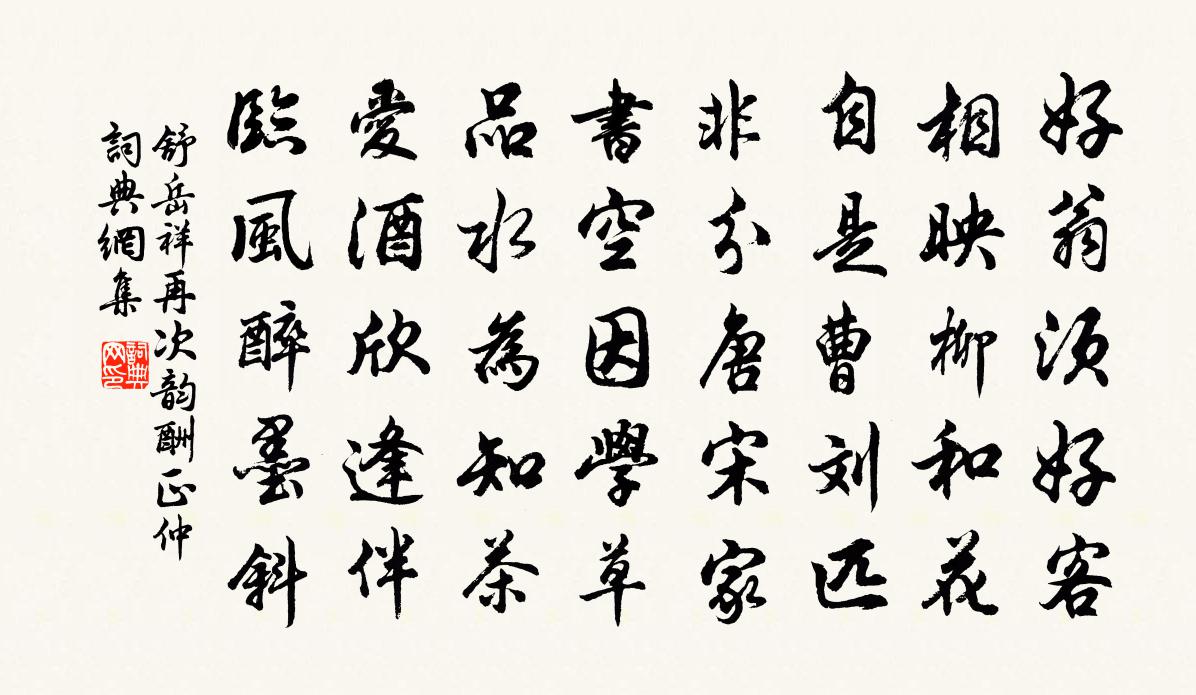 好翁須好客
相映柳和花
自是曹刘匹
非分唐宋家
書空因學草
品水為知茶
愛酒欣逢伴
臨風醉墨斜
舒岳祥再次韵酬正仲
詞典網集
詞典网印